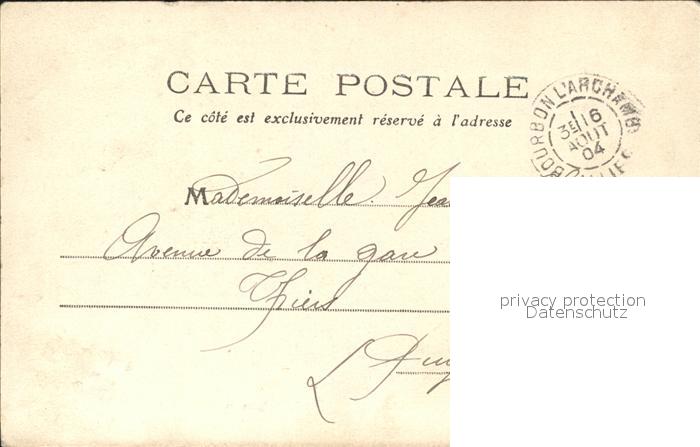 CARTE POSTALE
Ce côté est exclusivement réservé à l'adresse
BOURBON L'ARCHAMB
3E 16
AOUT
04
Mademoiselle
Avenue de la gare
Thiers
privacy protection
Datenschutz